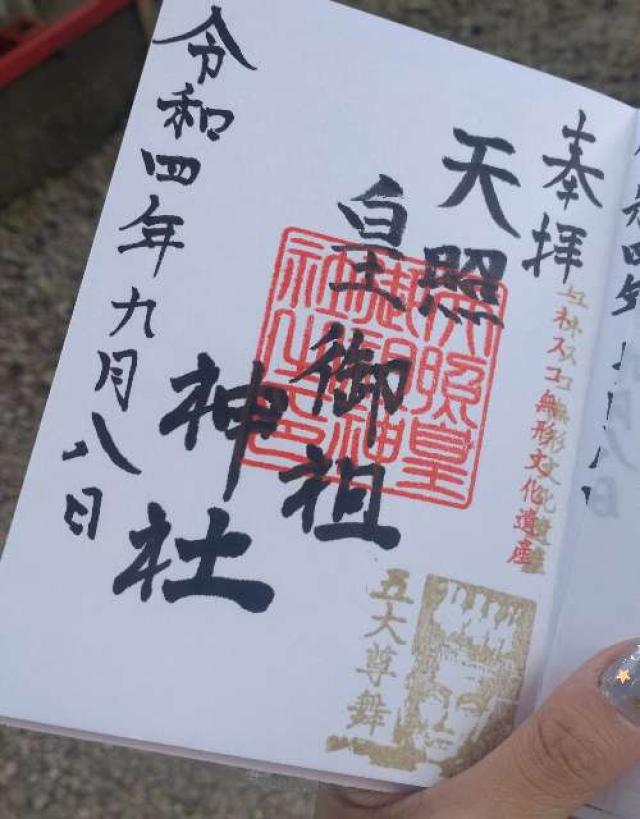 奉拝
ユネスコ無形文化遺産
天照
皇御祖
神社
天照皇
御祖神
社之印
五大尊舞
令和四年九月八日